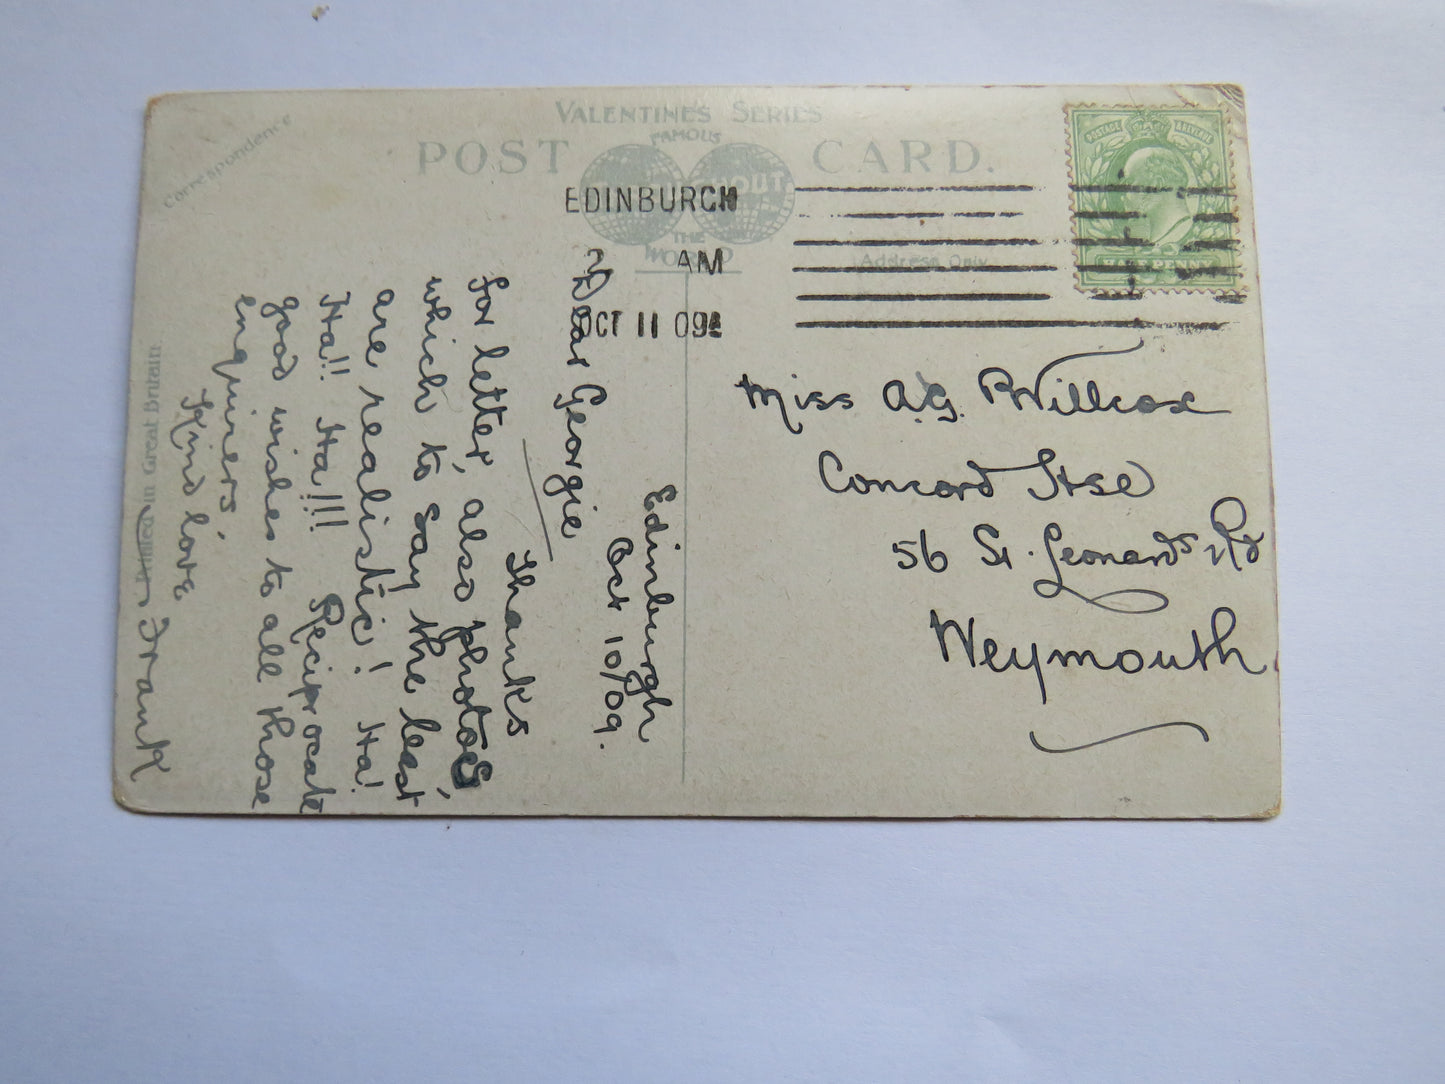 VALENTINE'S SERIES
FAMOUS
POST CARD.
THE
WORLD
Correspondence
Address Only
Printed in Great Britain
EDINBURGH
2 AM
OCT 11 09
POSTAGE & REVENUE
HALFPENNY
Edinburgh
Oct 10/09.
Dear Georgie
Thanks
for letter, also photos
which to say the least,
are realistic! Ha!
Ha!! Ha!!! Reciprocate
good wishes to all those
enquirers,
Kind love
Frank
Miss A.G. Willcox
Concord Hse
56 St. Leonards Rd
Weymouth.